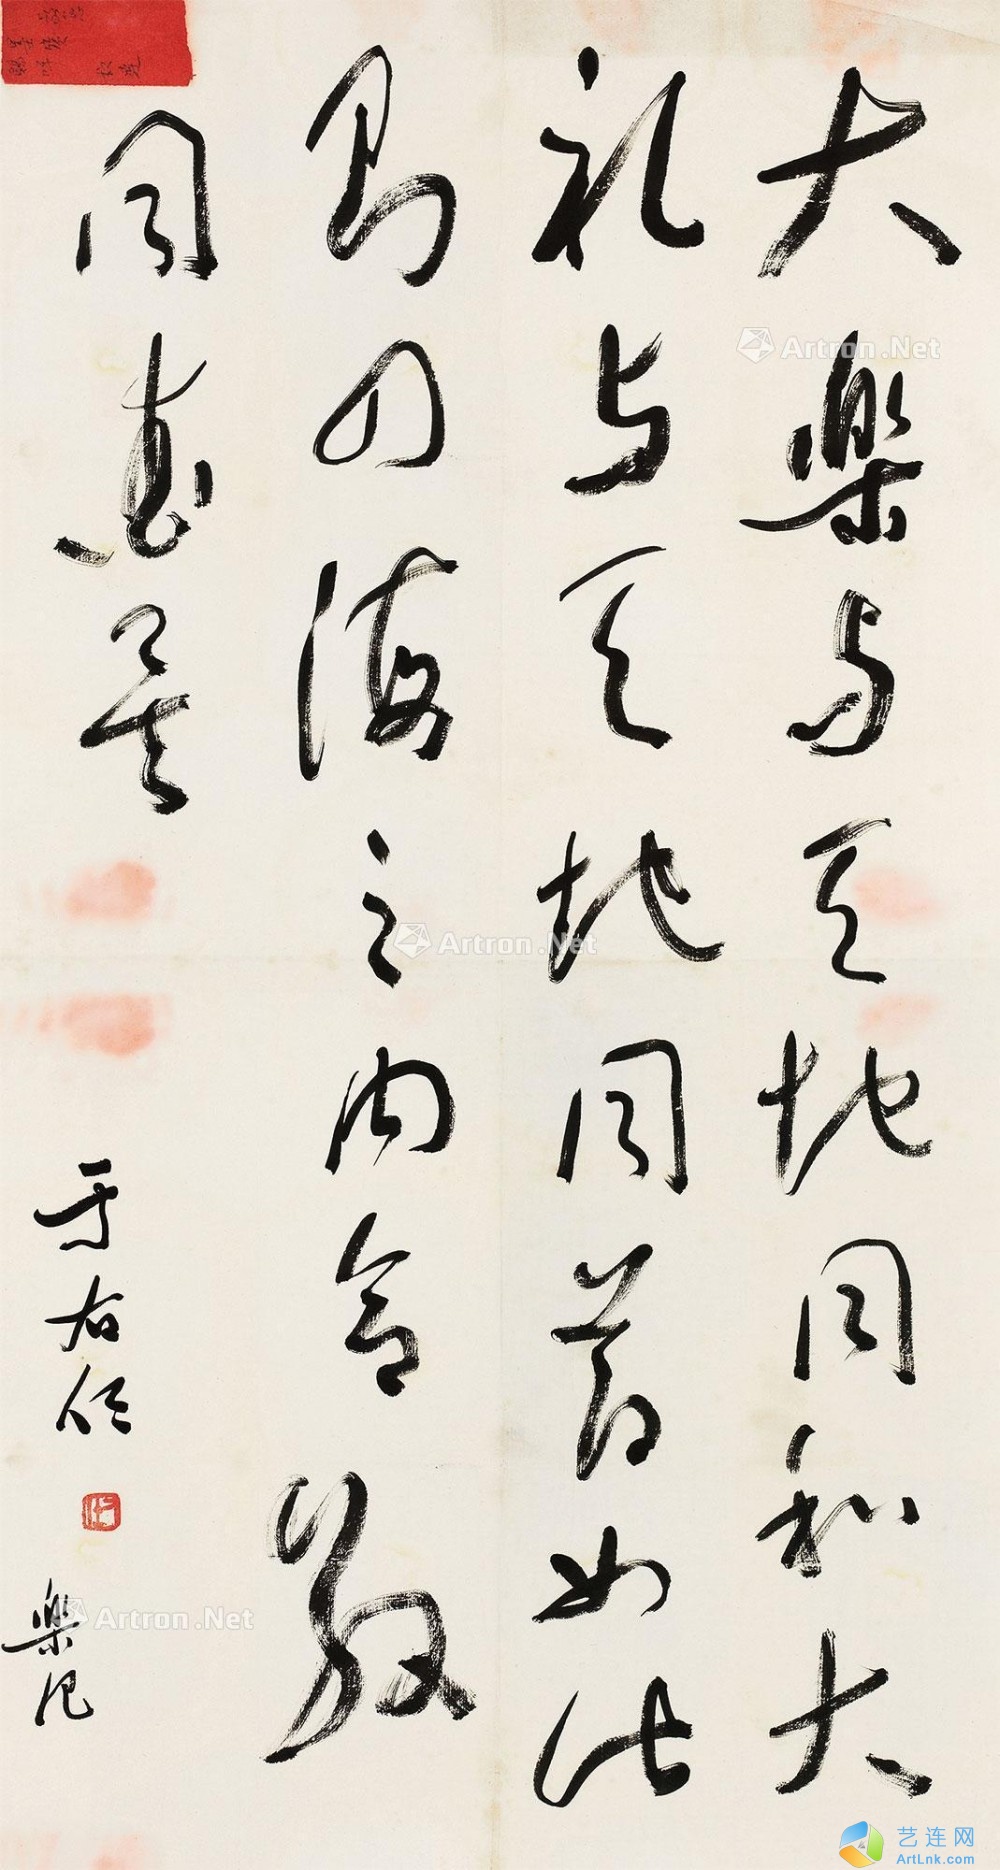 大樂与天地同和大
礼与天地同節如此
則四海之內合敬
同愛矣
于右任
樂記
Artron.Net
Artron.Net
Artron.Net
艺连网
ArtLnk.com